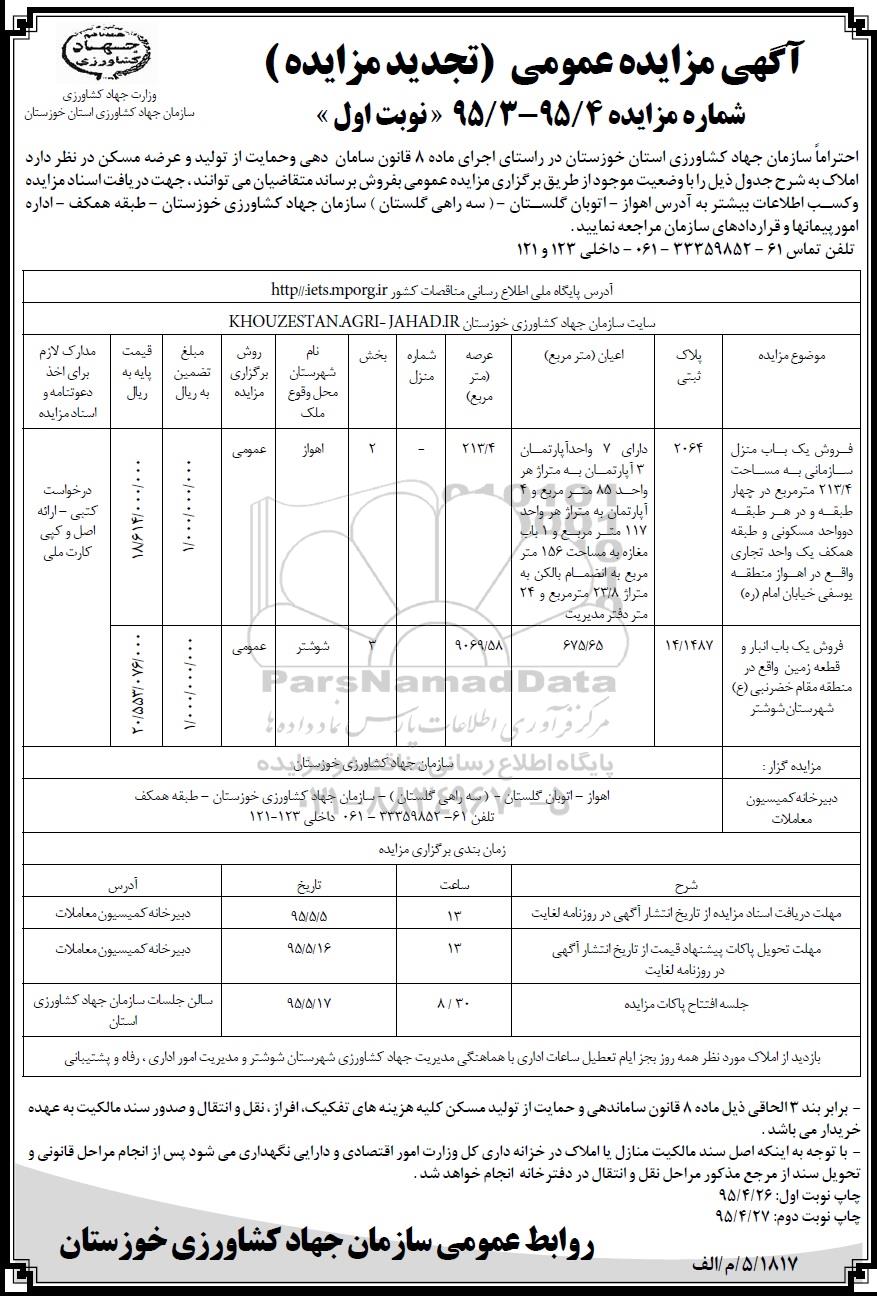 آگهی مزایده عمومی (تجدید مزایده)
شماره مزایده ۹۵/۴-۹۵/۳ «نوبت اول»
جهاد کشاورزی
وزارت جهاد کشاورزی
سازمان جهاد کشاورزی استان خوزستان
احتراماً سازمان جهاد کشاورزی استان خوزستان در راستای اجرای ماده ۸ قانون سامان دهی وحمایت از تولید و عرضه مسکن در نظر دارد
املاک به شرح جدول ذیل را با وضعیت موجود از طریق برگزاری مزایده عمومی بفروش برساند متقاضیان می توانند ، جهت دریافت اسناد مزایده
وکسب اطلاعات بیشتر به آدرس اهواز - اتوبان گلستان -( سه راهی گلستان ) سازمان جهاد کشاورزی خوزستان - طبقه همکف - اداره
امور پیمانها و قراردادهای سازمان مراجعه نمایید .
تلفن تماس ۶۱ - ۳۳۳۵۹۸۵۲ - ۰۶۱ - داخلی ۱۲۳ و ۱۲۱
آدرس پایگاه ملی اطلاع رسانی مناقصات کشور http//:iets.mporg.ir
سایت سازمان جهاد کشاورزی خوزستان KHOUZESTAN.AGRI- JAHAD.IR
موضوع مزایده
پلاک
ثبتی
اعیان (متر مربع)
عرصه
(متر
مربع)
شماره
منزل
بخش
نام
شهرستان
محل وقوع
ملک
روش
برگزاری
مزایده
مبلغ
تضمین
به ریال
قیمت
پایه به
ریال
مدارک لازم
برای اخذ
دعوتنامه و
اسناد مزایده
فروش یک باب منزل
سازمانی به مساحت
۲۱۳/۴ مترمربع در چهار
طبقه و در هر طبقه
دوواحد مسکونی و طبقه
همکف یک واحد تجاری
واقع در اهواز منطقه
یوسفی خیابان امام (ره)
۲۰۶۴
دارای ۷ واحدآپارتمان
۳ آپارتمان به متراژ هر
واحد ۸۵ متر مربع و ۴
آپارتمان به متراژ هر واحد
۱۱۷ متر مربع و ۱ باب
مغازه به مساحت ۱۵۶ متر
مربع به انضمام بالکن به
متراژ ۲۳/۸ مترمربع و ۲۴
متر دفتر مدیریت
۲۱۳/۴
-
۲
اهواز
عمومی
۱/۰۰۰/۰۰۰/۰۰۰
۱۸/۶۱۴/۰۰۰/۰۰۰
درخواست
کتبی - ارائه
اصل و کپی
کارت ملی
فروش یک باب انبار و
قطعه زمین واقع در
منطقه مقام خضرنبی (ع)
شهرستان شوشتر
۱۴/۱۴۸۷
۶۷۵/۶۵
۹۰۶۹/۵۸
۳
شوشتر
عمومی
۱/۰۰۰/۰۰۰/۰۰۰
۲۰/۵۵۳/۰۷۶/۰۰۰
ParsNamadData
مرکز فرآوری اطلاعات پارس نماد داده ها
پایگاه اطلاع رسانی مناقصه و مزایده
مزایده گزار :
سازمان جهاد کشاورزی خوزستان
دبیرخانه کمیسیون
معاملات
اهواز - اتوبان گلستان - ( سه راهی گلستان ) - سازمان جهاد کشاورزی خوزستان - طبقه همکف
تلفن ۶۱- ۳۳۳۵۹۸۵۲ - ۰۶۱ داخلی ۱۲۳-۱۲۱
زمان بندی برگزاری مزایده
شرح
ساعت
تاریخ
آدرس
مهلت دریافت اسناد مزایده از تاریخ انتشار آگهی در روزنامه لغایت
۱۳
۹۵/۵/۵
دبیرخانه کمیسیون معاملات
مهلت تحویل پاکات پیشنهاد قیمت از تاریخ انتشار آگهی
در روزنامه لغایت
۱۳
۹۵/۵/۱۶
دبیرخانه کمیسیون معاملات
جلسه افتتاح پاکات مزایده
۸ / ۳۰
۹۵/۵/۱۷
سالن جلسات سازمان جهاد کشاورزی
استان
بازدید از املاک مورد نظر همه روز بجز ایام تعطیل ساعات اداری با هماهنگی مدیریت جهاد کشاورزی شهرستان شوشتر و مدیریت امور اداری ، رفاه و پشتیبانی
- برابر بند ۳ الحاقی ذیل ماده ۸ قانون ساماندهی و حمایت از تولید مسکن کلیه هزینه های تفکیک، افراز ، نقل و انتقال و صدور سند مالکیت به عهده
خریدار می باشد .
- با توجه به اینکه اصل سند مالکیت منازل یا املاک در خزانه داری کل وزارت امور اقتصادی و دارایی نگهداری می شود پس از انجام مراحل قانونی و
تحویل سند از مرجع مذکور مراحل نقل و انتقال در دفترخانه انجام خواهد شد .
چاپ نوبت اول: ۹۵/۴/۲۶
چاپ نوبت دوم: ۹۵/۴/۲۷
روابط عمومی سازمان جهاد کشاورزی خوزستان
۵/۱۸۱۷/م/الف